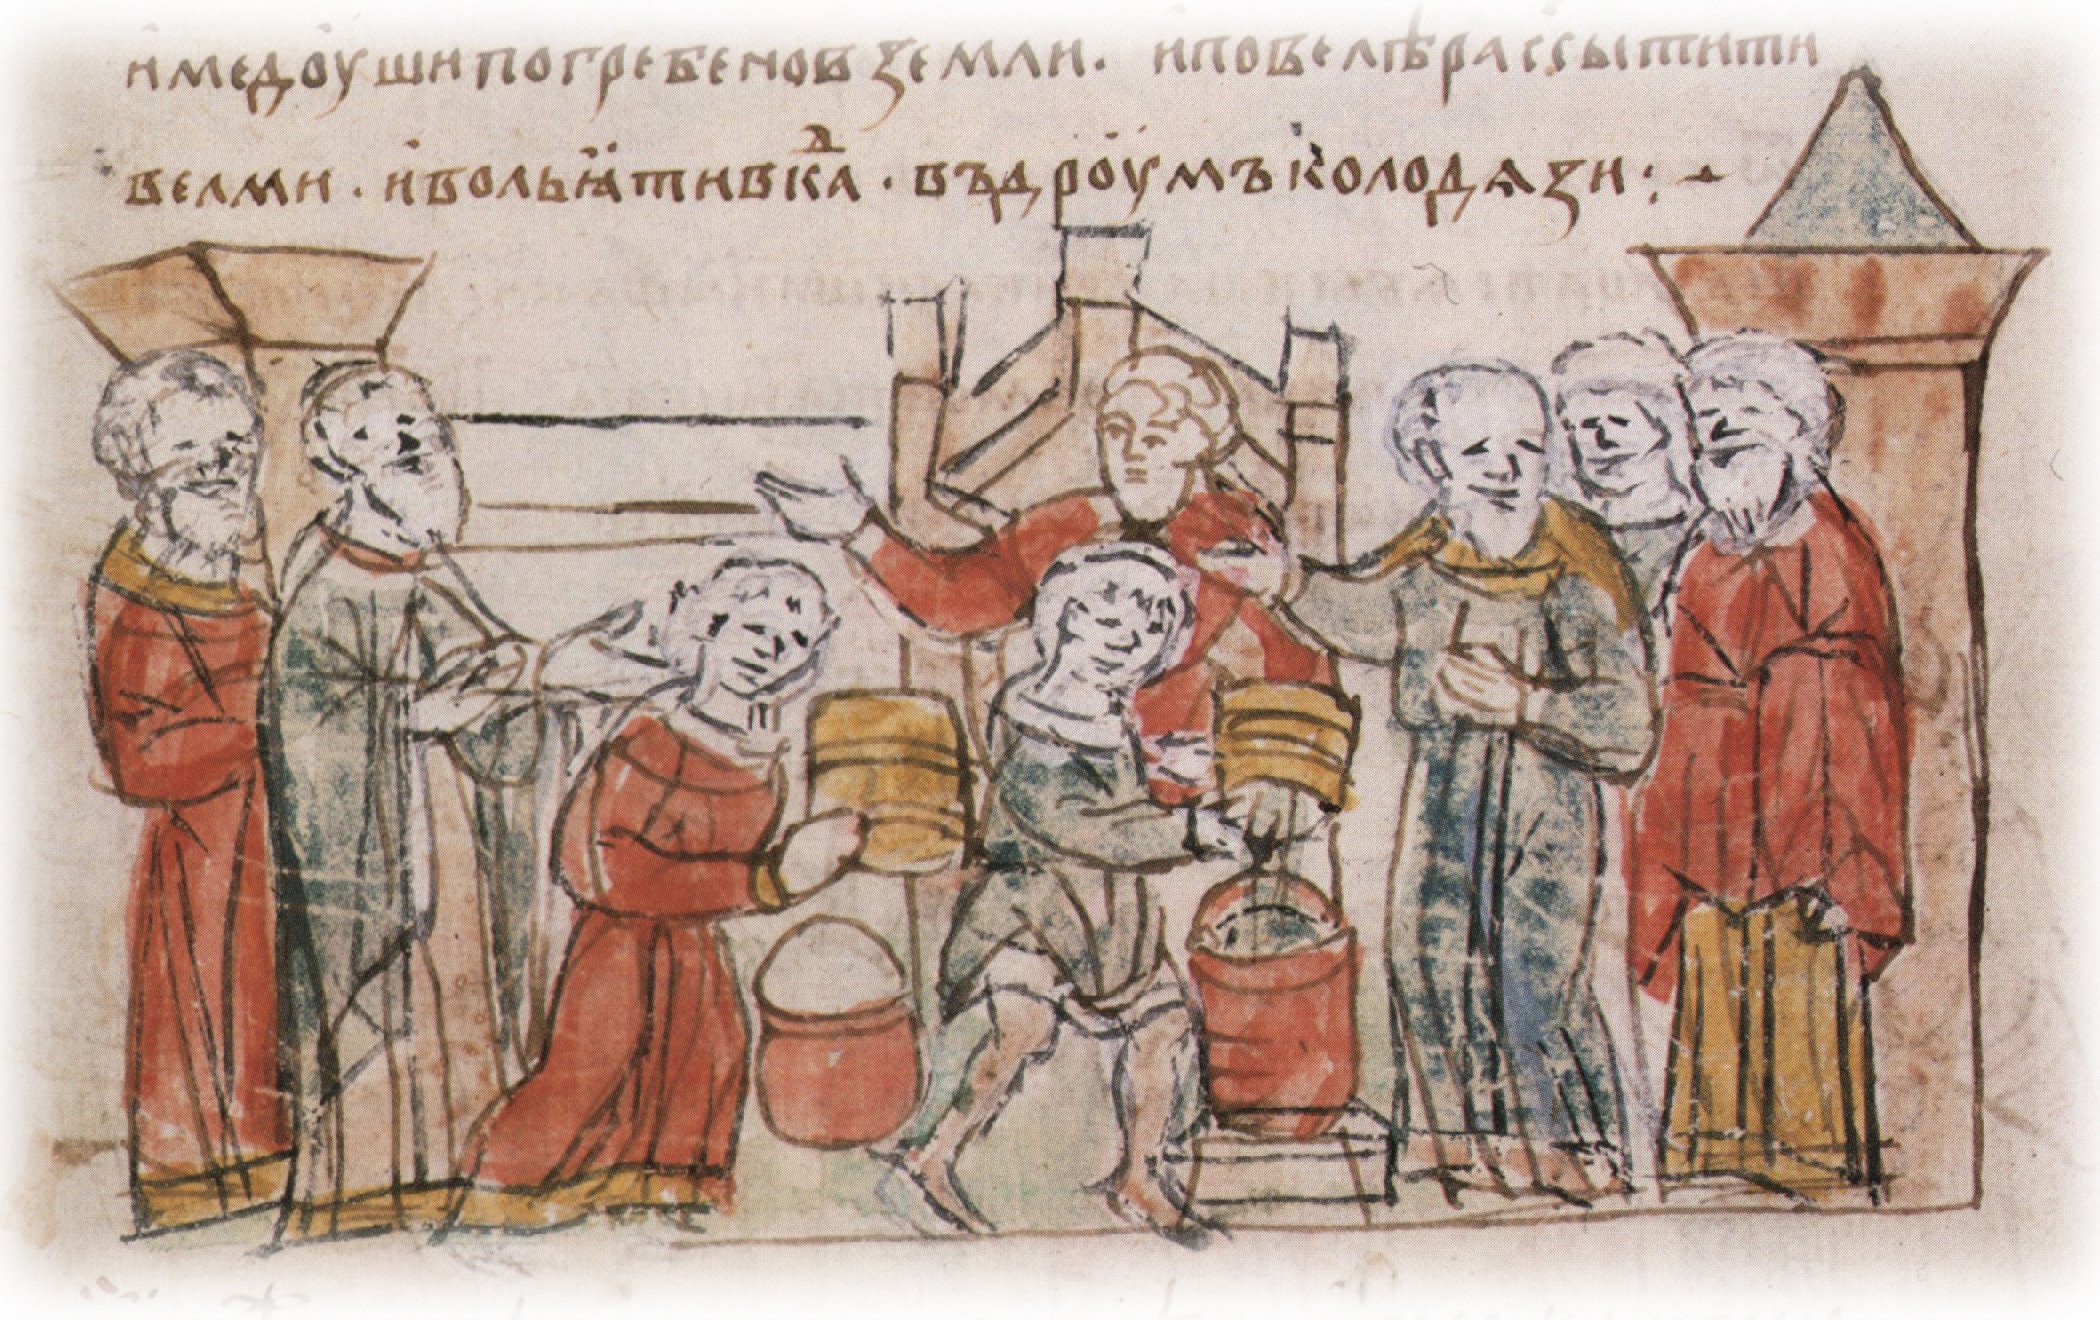 и медоуши погребено в земли. и повелѣ рассытити
велми . и вольꙗти в каⷣ . въ дроумъ колодѧзи :-